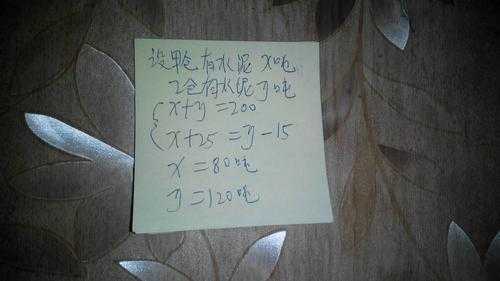 设甲仓有水泥x吨
乙仓有水泥y吨
{x+y=200
{x+25=y-15
x=80吨
y=120吨